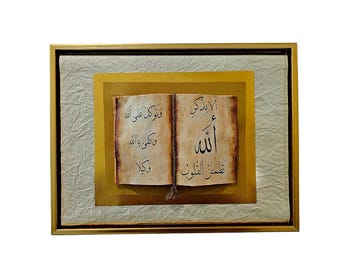 ألا بذكر
ألله
تطمئن القلوب
وتوكل على الله
وكفى بالله
وكيلا